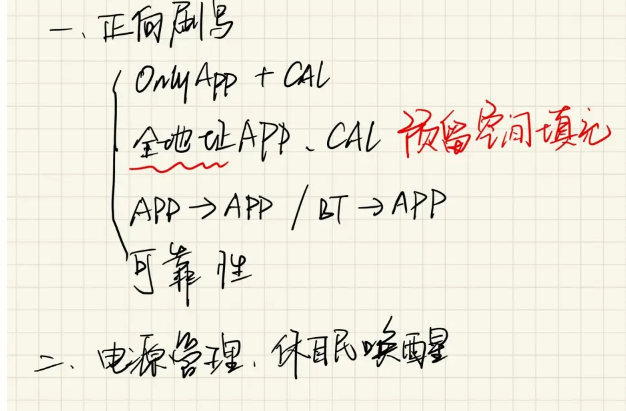 一、正向刷写
Only App + CAL
全地址APP、CAL 预留空间填充
APP→APP / BT→APP
可靠性
二、电源管理、休眠唤醒